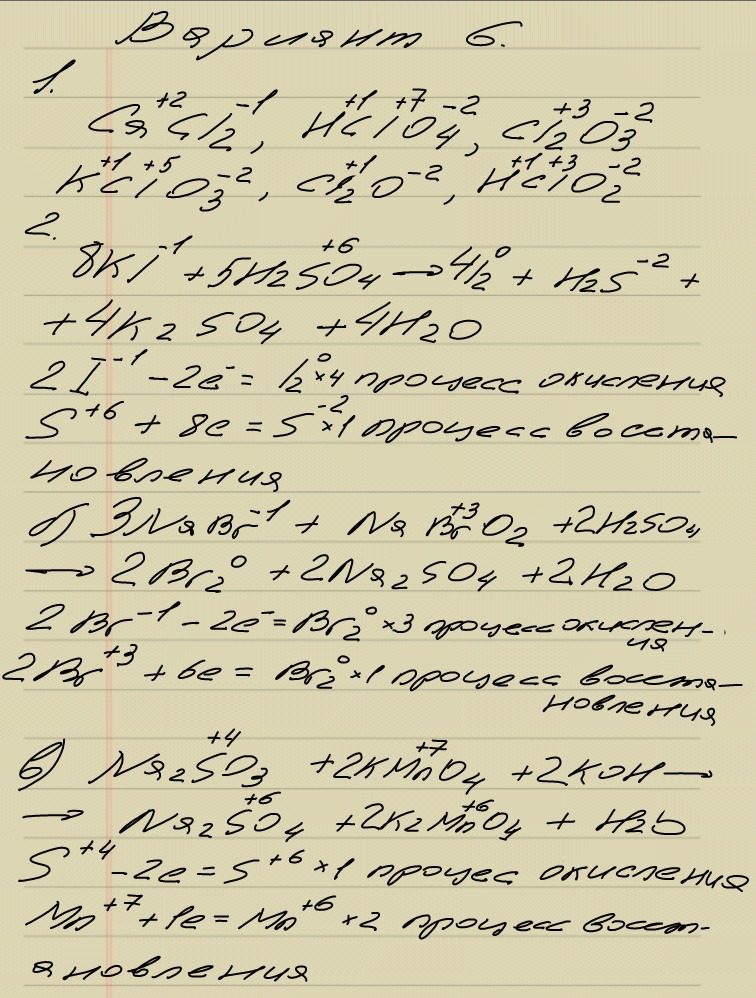 Вариант 6.
1.
Ca⁺²Cl₂⁻¹, H⁺¹Cl⁺⁷O₄⁻², Cl₂⁺³O₃⁻²
K⁺¹Cl⁺⁵O₃⁻², Cl₂⁺¹O⁻², H⁺¹Cl⁺³O₂⁻²
2.
8KI⁻¹ + 5H₂S⁺⁶O₄ → 4I₂⁰ + H₂S⁻² +
+ 4K₂SO₄ + 4H₂O
2I⁻¹ - 2e⁻ = I₂⁰ ×4 процесс окисления
S⁺⁶ + 8e = S⁻² ×1 процесс восста-
новления
б) 3NaBr⁻¹ + NaBr⁺³O₂ + 2H₂SO₄
→ 2Br₂⁰ + 2Na₂SO₄ + 2H₂O
2Br⁻¹ - 2e⁻ = Br₂⁰ ×3 процесс окислен-
ия
2Br⁺³ + 6e = Br₂⁰ ×1 процесс восста-
новления
в) Na₂S⁺⁴O₃ + 2KMn⁺⁷O₄ + 2KOH →
→ Na₂S⁺⁶O₄ + 2K₂Mn⁺⁶O₄ + H₂O
S⁺⁴ - 2e = S⁺⁶ ×1 процес окисления
Mn⁺⁷ + 1e = Mn⁺⁶ ×2 процесс восст-
ановления